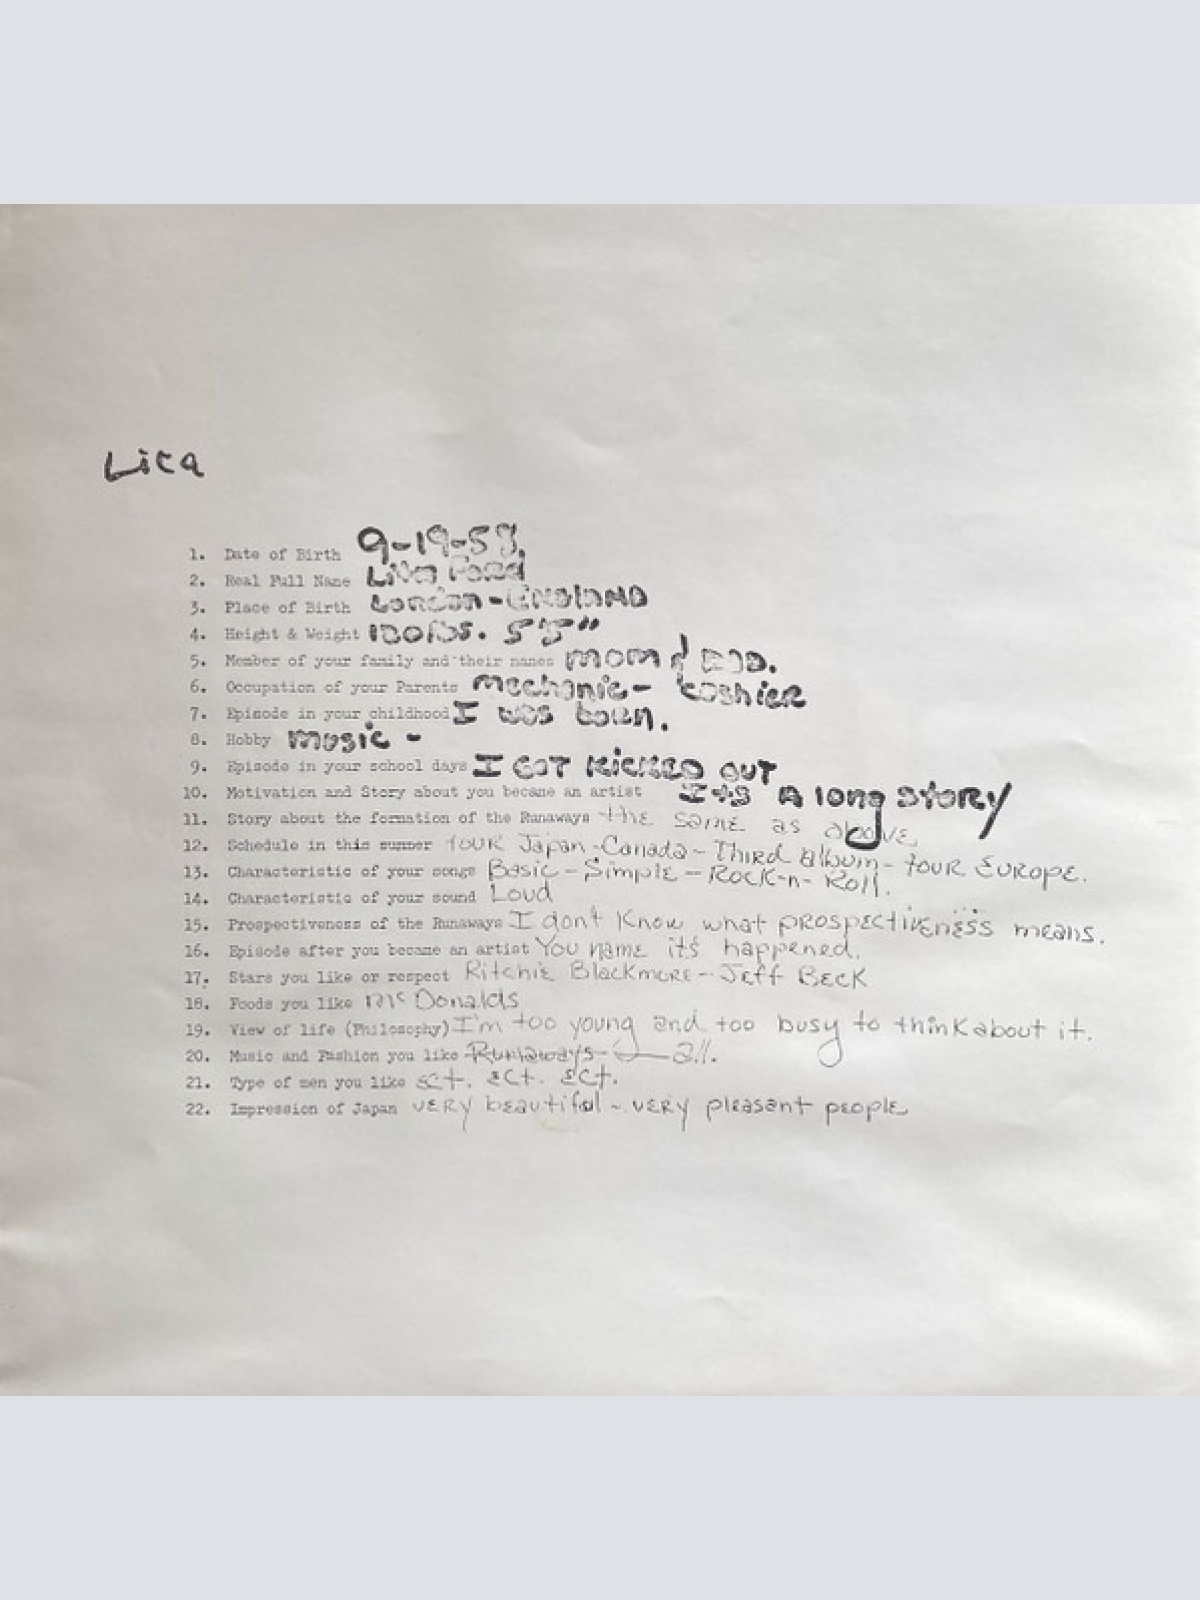 Lita
1. Date of Birth 9-19-58.
2. Real Full Name Lita Ford
3. Place of Birth London - England
4. Height & Weight 120 lbs. 5'5"
5. Member of your family and their names mom & DAD.
6. Occupation of your Parents mechanic - cashier
7. Episode in your childhood I was born.
8. Hobby music -
9. Episode in your school days I GOT KICKED OUT
10. Motivation and Story about you became an artist Its A long story
11. Story about the formation of the Runaways the same as above
12. Schedule in this summer TOUR Japan - Canada - Third album - tour Europe.
13. Characteristic of your songs Basic - Simple - Rock-n-Roll.
14. Characteristic of your sound Loud
15. Prospectiveness of the Runaways I don't know what prospectiveness means.
16. Episode after you became an artist You name it's happened.
17. Stars you like or respect Ritchie Blackmore - Jeff Beck
18. Foods you like McDonalds
19. View of life (Philosophy) I'm too young and too busy to think about it.
20. Music and Fashion you like Runaways -
21. Type of men you like ect. ect. ect.
22. Impression of Japan very beautiful ~ very pleasant people